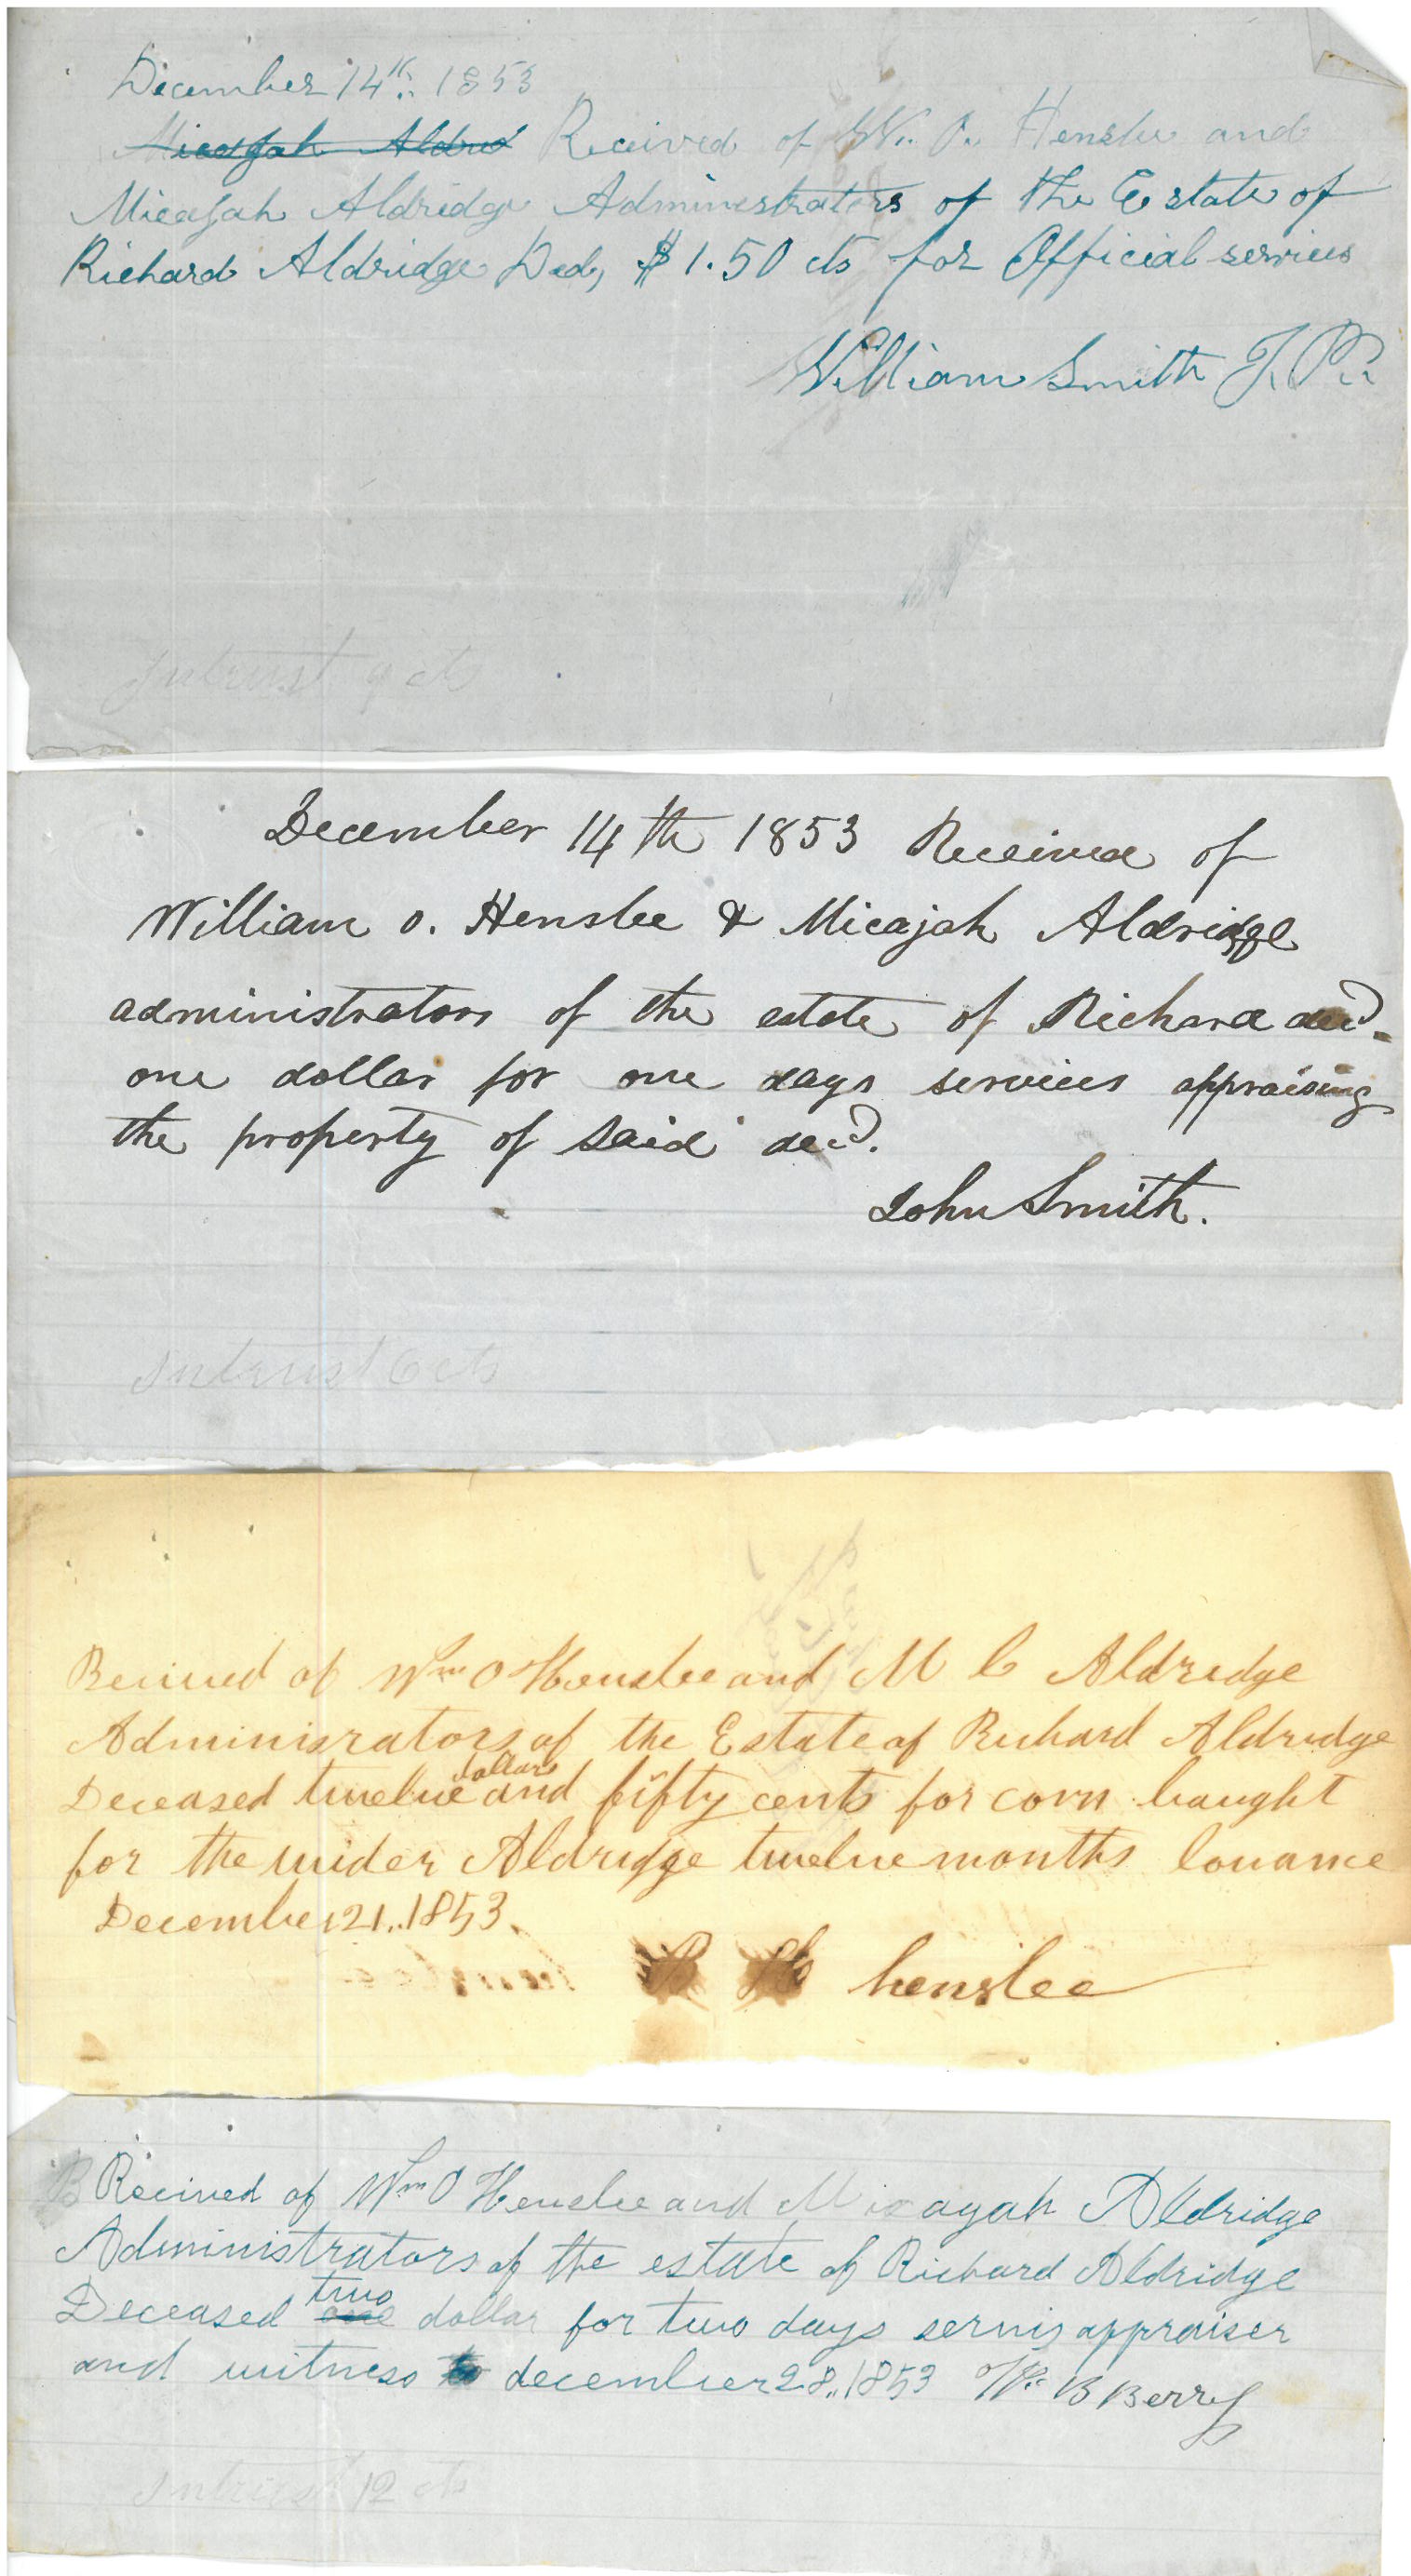 December 14th 1853
Micajah Aldred Received of W. O. Henslee and
Micajah Aldridge Adminestraters of the Estate of
Richard Aldridge Decd, $1.50 cts for Official services
William Smith J. P.
Intrust 9 cts
December 14th 1853 Received of
William O. Henslee & Micajah Aldridge
administrators of the estate of Richard decd.
one dollar for one days services appraising
the property of said decd.
John Smith.
Intrust 6 cts
Recived of Wm O Henslee and M C Aldredge
Adminisrators of the Estate of Richard Aldridge
dollars
Deceased twelve and fifty cents for corn baught
for the wider Aldridge twelve months louance
December 21,, 1853.
henslee
Recived of Wm O Henslee and Micayah Aldridge
Administrators of the estate of Richard Aldridge
two
Deceased one dollar for two days servis appraiser
and witness to december 28,, 1853 Wm B Berry
Intrust 12 cts